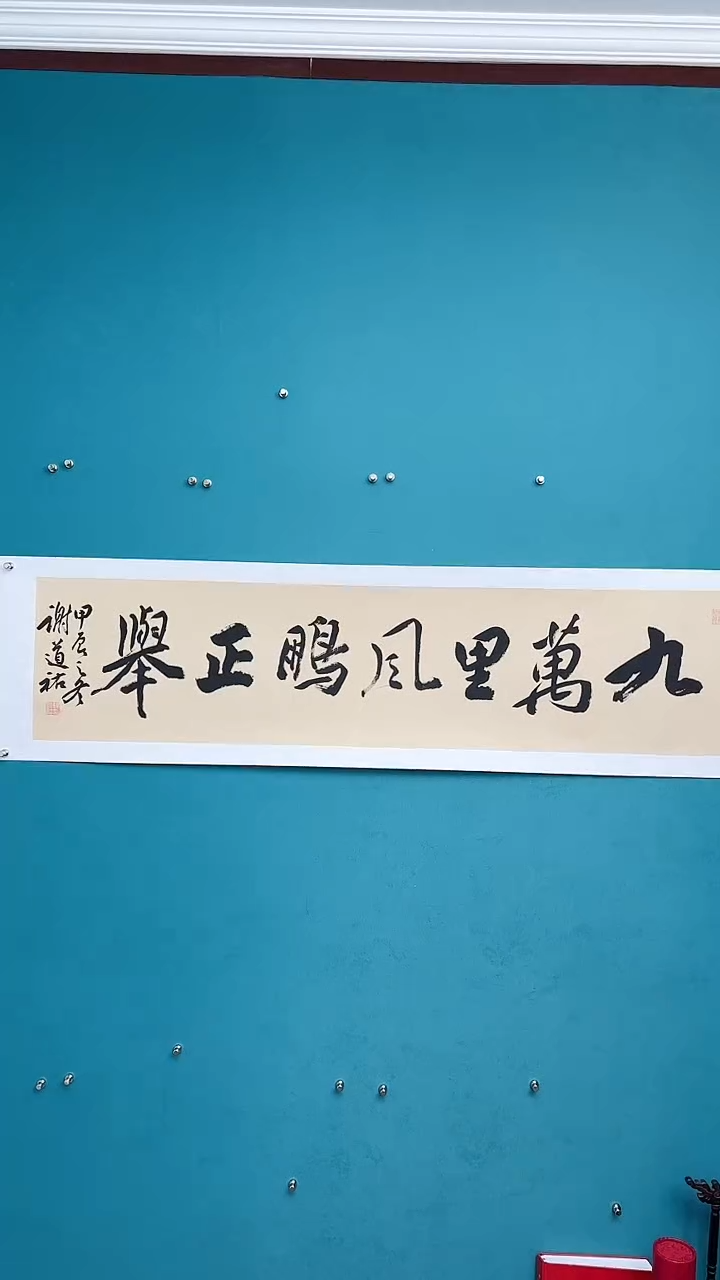 九萬里風鵬正舉
甲辰之冬
謝道祐